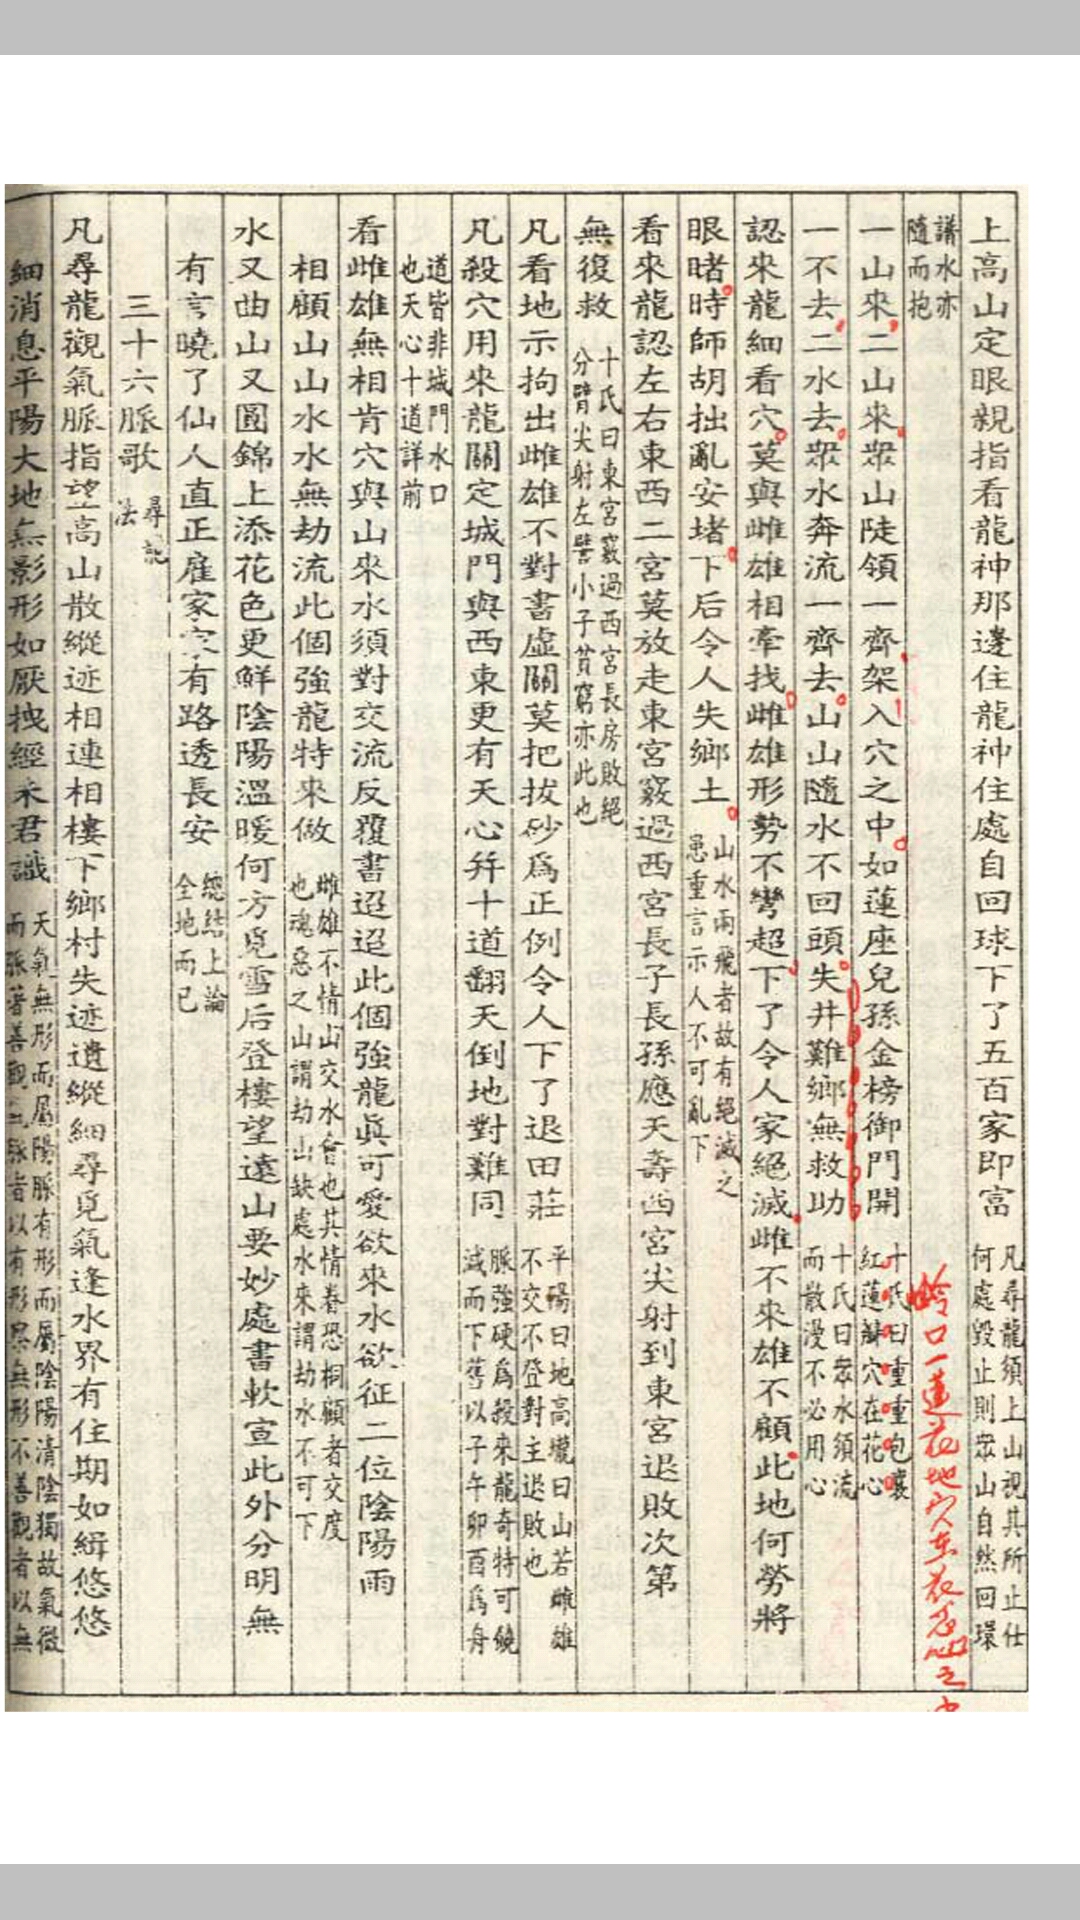 上高山定眼親指看龍神那邊住龍神住處自回球下了五百家即富
凡尋龍須上山視其所止仕
何處毀止則眾山自然回環
議水亦
隨而抱
一山來二山來眾山陡領一齊架入穴之中如蓮座兒孫金榜御門開
十氏曰重重包裹
紅蓮瓣穴在花心
口一蓮花地穴在花心之中
一不去二水去眾水奔流一齊去山山隨水不回頭失井難鄉無救助
十氏曰眾水須流
而散漫不必用心
認來龍細看穴莫與雌雄相牽找雌雄形勢不彎超下了令人家絕滅雌不來雄不顧此地何勞將
眼睹時師胡拙亂安堵下后令人失鄉土
山水兩飛者故有絕滅之
患重言示人不可亂下
看來龍認左右東西二宮莫放走東宮竅過西宮長子長孫應天壽西宮尖射到東宮退敗次第
無復救
十氏曰東宮竅過西宮長房敗絕
分臂尖射左臂小子貧窮亦此也
凡看地示拘出雌雄不對書虛關莫把拔砂為正例令人下了退田莊
平陽曰地高壠曰山若雌雄
不交不登對主退敗也
凡殺穴用來龍關定城門與西東更有天心并十道翻天倒地對難同
脈強硬為殺來龍奇特可饒
減而下舊以子午卯酉為舟
道皆非城門水口
也天心十道詳前
看雌雄無相肯穴與山來水須對交流反覆書迢迢此個強龍眞可愛欲來水欲征二位陰陽雨
相顧山山水水無劫流此個強龍特來做
雌雄不情山交水會也其情眷恐桐顧者交度
也魂惡之山謂劫山缺處水來謂劫水不可下
水又曲山又圓錦上添花色更鮮陰陽溫暖何方覓雪后登樓望遠山要妙處書軟宣此外分明無
有言曉了仙人直正雇家家有路透長安
總結上論
全地而已
三十六脈歌
尋說
法
凡尋龍觀氣脈指望高山散縱迹相連相樓下鄉村失迹遺縱細尋覓氣逢水界有住期如緝悠悠
細消息平陽大地無影形如厭拽經未君識
天氣無形而屬陽脈有形而屬陰陽清陰獨故氣微
而脈著善觀氣脈者以有形界無形不善觀者以無